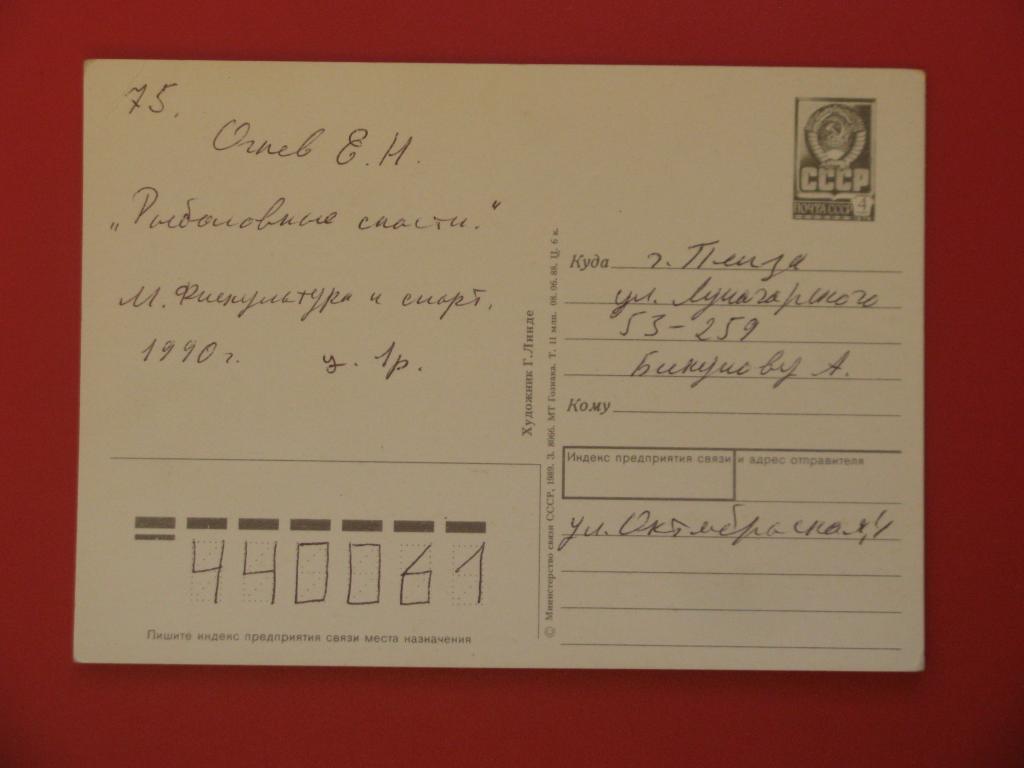 75.
Огнев Е.Н.
„Рыболовные снасти."
М. Физкультура и спорт.
1990г. ц. 1р.
СССР
ПОЧТА СССР 4
Куда г. Пенза
ул. Луначарского
53-259
Бикулову А.
Кому
Индекс предприятия связи и адрес отправителя
ул. Октябрьская, 4
440061
Пишите индекс предприятия связи места назначения
Художник Г. Линде
© Министерство связи СССР, 1989. З. 8066. МТ Гознака. Т. 11 млн. 08.06.88. Ц. 6 к.